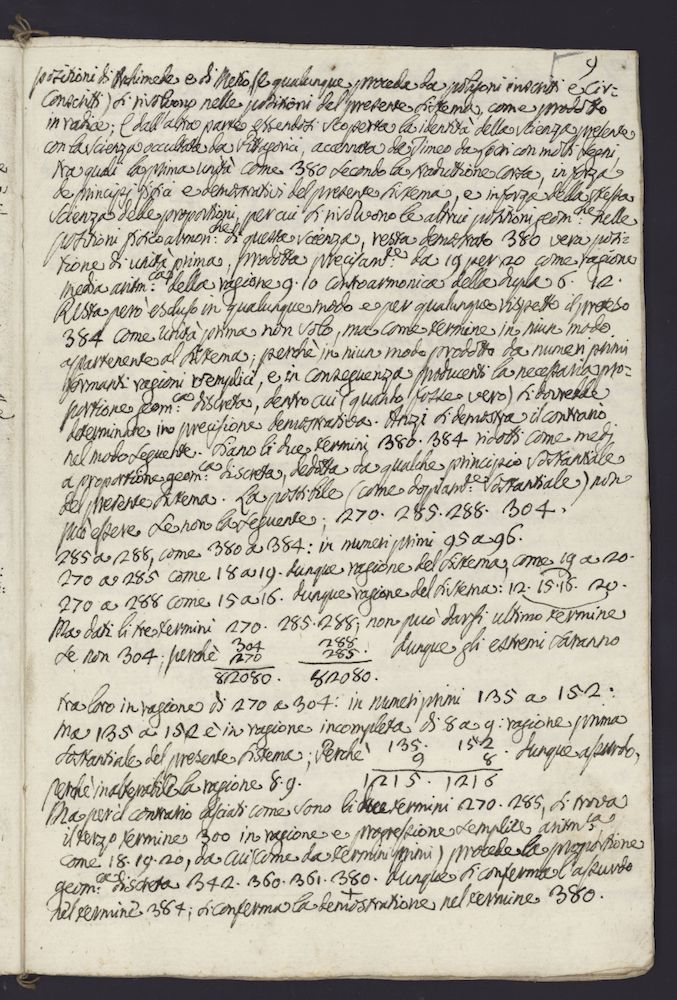 9
posizioni di Archimede e di Mezio (e qualunque proceda da poligoni inscritti e cir-
conscritti) si risolvono nelle posizioni del presente sistema, come prodotto
in radice; e dall'altra parte essendosi scoperta la identità della scienza presente
con la scienza occultata da Pittagora, accennata da Timeo da Locri con molti segni,
tra quali la prima unità come 380 secondo la traduzione corsa, in forza
de principj fisici e dimostrativi del presente sistema, e in forza della stessa
scienza delle proporzioni, per cui si risolvono le altrui posizioni geom:he nelle
posizioni fisicoarmon:he di questa scienza, resta demostrato 380 vera posi-
zione di unità prima, prodotta precisam:te da 19 per 20 come ragione
media aritm:ca della ragione 9. 10 contraarmonica della dupla 6. 12.
Resta però escluso in qualunque modo e per qualunque rispetto il preteso
384 come unità prima non solo, ma come termine in niun modo
appartenente al sistema; perchè in niun modo prodotto da numeri primi
formanti ragioni semplici, e in conseguenza producenti la necessaria pro-
porzione geom:ca discreta, dentro cui (quando fosse vero) si dovrebbe
determinare in precisione demostrativa. Anzi si demostra il contrario
nel modo seguente. Siano li due termini 380. 384 ridotti come medj
a proporzione geom:ca discreta, dedotta da qualche principio sostanziale
del presente sistema. La possibile (come dopiam:te sostanziale) non
può essere se non la seguente; 270. 285. 288. 304.
285 a 288, come 380 a 384: in numeri primi 95 a 96.
270 a 285 come 18 a 19. dunque ragione del sistema, come 19 a 20.
270 a 288 come 15 a 16. dunque ragione del sistema: 12. 15. 16. 20.
Ma dati li tre termini 270. 285. 288; non può darsi ultimo termine
se non 304; perchè 304 288 . dunque gli estremi saranno
270 285
82080. 82080.
tra loro in ragione di 270 a 304: in numeri primi 135 a 152:
Ma 135 a 152 è in ragione incompleta di 8 a 9: ragione prima
sostanziale del presente sistema; perchè 135. 152 . dunque assurdo,
9 8
perchè inalterabile la ragione 8. 9. 1215. 1216
Ma per il contrario lasciati come sono li due termini 270. 285, si trova
il terzo termine 300 in ragione e progressione semplice aritm:ca
come 18. 19. 20, da cui (come da termini primi) procede la proporzione
geom:ca discreta 342. 360. 361. 380. dunque si conferma l'assurdo
nel termine 384; si conferma la demostratione nel termine 380.